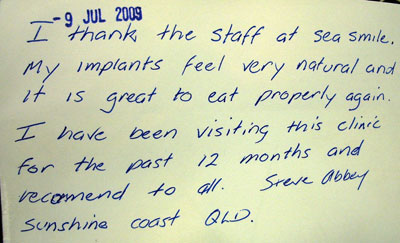 - 9 JUL 2009
I thank the staff at sea smile.
My implants feel very natural and
it is great to eat properly again.
I have been visiting this clinic
for the past 12 months and
recomend to all. Steve Abbey
Sunshine coast QLD.